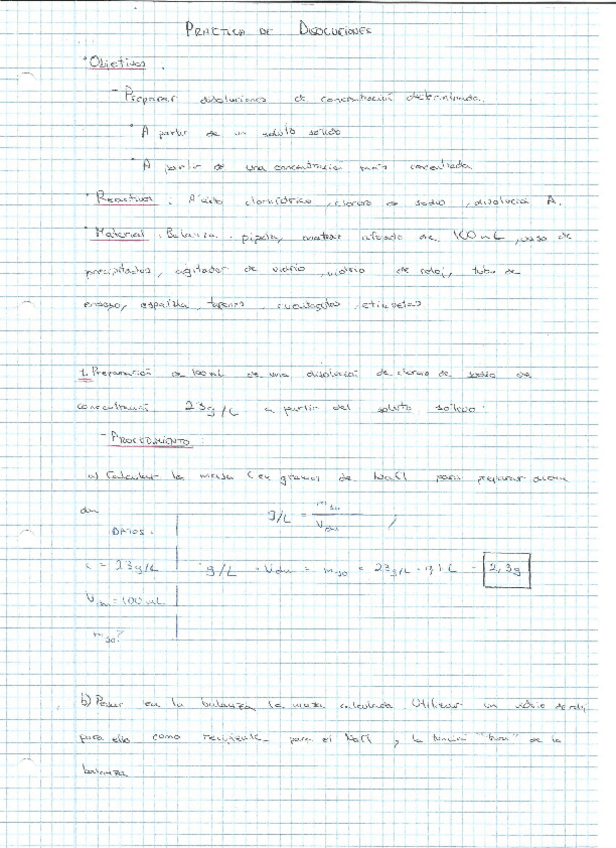 PRACTICA DE DISOLUCIONES
· Objetivos.
- Preparar disoluciones de concentración determinada.
· A partir de un soluto sólido
· A partir de una concentración más concentrada
· Reactivos: Ácido clorhídrico, cloruro de sodio, disolución A.
· Material: Balanza, pipeta, matraz aforado de 100 mL, vaso de
precipitados, agitador de vidrio, vidrio de reloj, tubo de
ensayo, espátula, tapones, cuentagotas, etiquetas
1. Preparación de 100 mL de una disolución de cloruro de sodio de
concentración 23 g/L a partir del soluto sólido.
- PROCEDIMIENTO
a) Calcular la masa (en gramos de NaCl para preparar
g/L =
DATOS:
c = 23 g/L
g/L · Vdis = = 23 g/L · 0,1 L = 2,3 g
= 100 mL
b) Pesar en la balanza la masa calculada. Utilizar un vidrio de reloj
para ello como recipiente para el NaCl y la función "tara" de la
balanza